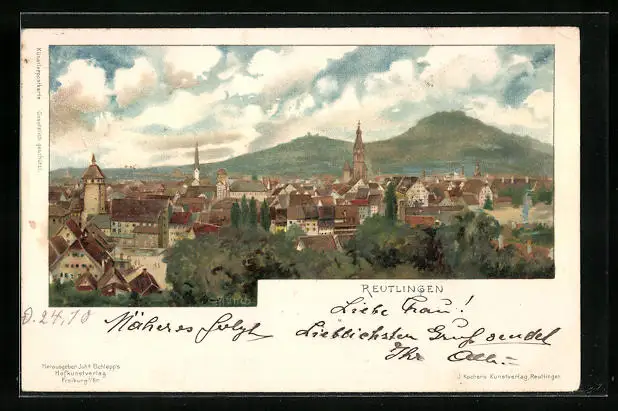 Künstlerpostkarte Gesetzlich geschützt.
REUTLINGEN
D. 24,10
Näheres folgt
Liebe Frau!
Lieblichsten Gruß sendet
Ihr
Herausgeber Juht Elchlepp's
Hofkunstverlag
Freiburg i/Br.
J. Kocher's Kunstverlag, Reutlingen.